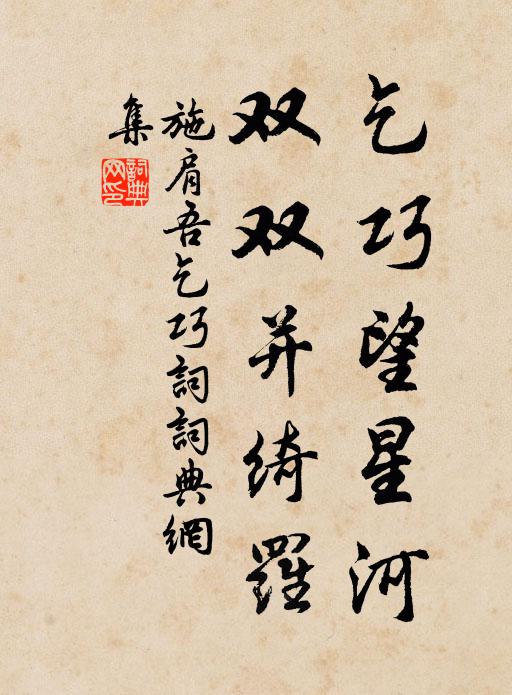 乞巧望星河
双双并绮羅
施肩吾乞巧詞詞典網
集
詞典
网印